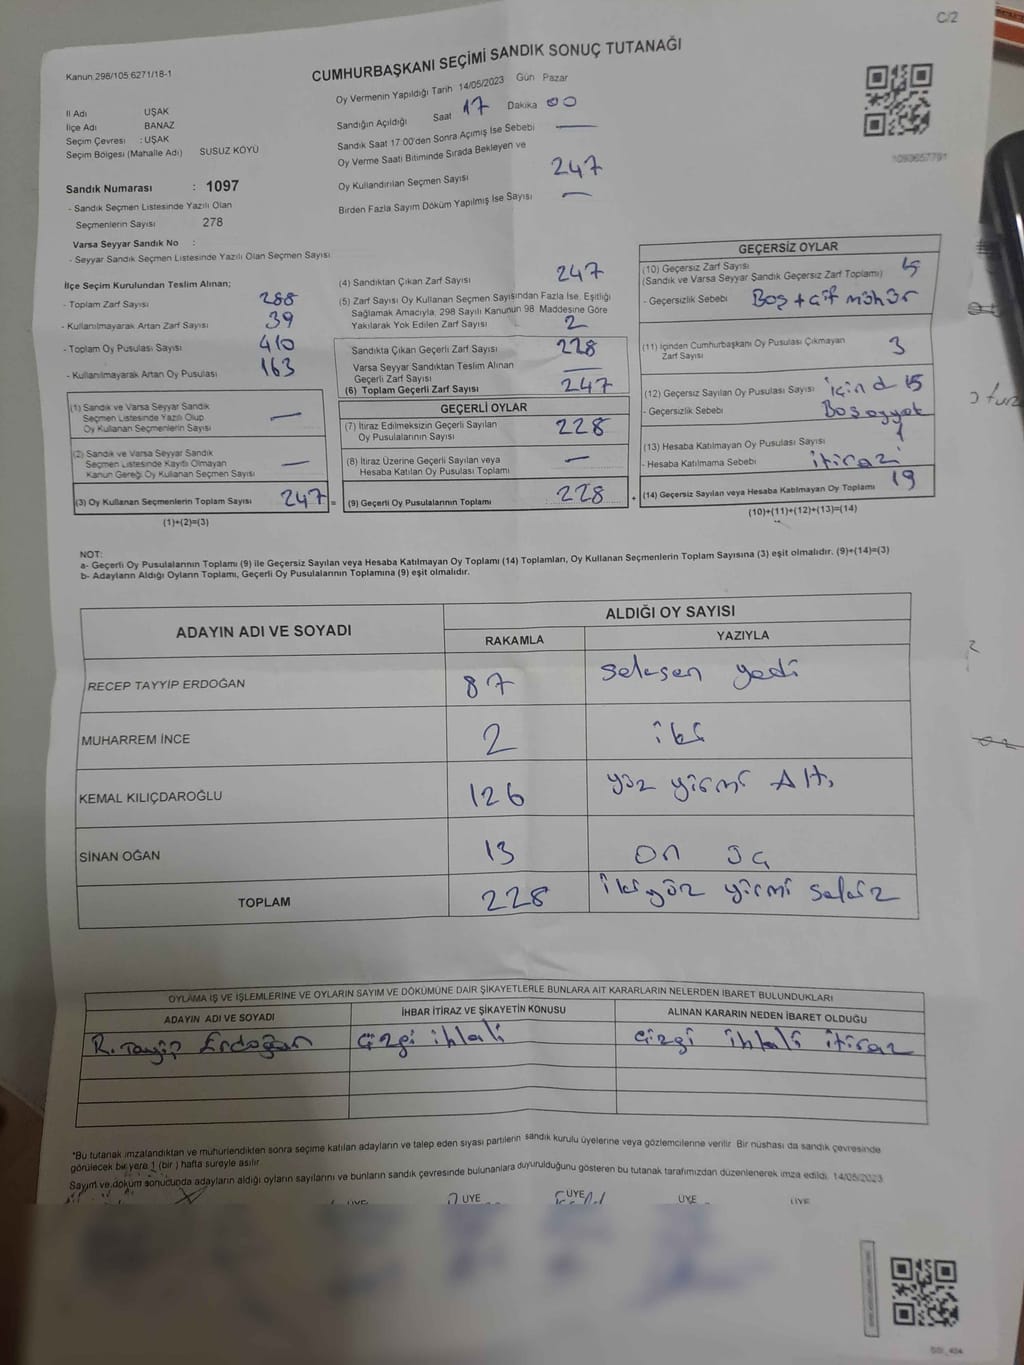 C/2
Kanun 298/105 6271/18-1
CUMHURBAŞKANI SEÇİMİ SANDIK SONUÇ TUTANAĞI
Oy Vermenin Yapıldığı Tarih 14/05/2023 Gün Pazar
İl Adı UŞAK
İlçe Adı BANAZ
Seçim Çevresi : UŞAK
Seçim Bölgesi (Mahalle Adı) SUSUZ KÖYÜ
Sandığın Açıldığı Saat 17 Dakika 00
Sandık Saat 17:00'den Sonra Açımış İse Sebebi —
Oy Verme Saati Bitiminde Sırada Bekleyen ve
Oy Kullandırılan Seçmen Sayısı 247
Birden Fazla Sayım Döküm Yapılmış İse Sayısı —
1093657791
Sandık Numarası : 1097
- Sandık Seçmen Listesinde Yazılı Olan
Seçmenlerin Sayısı 278
Varsa Seyyar Sandık No :
- Seyyar Sandık Seçmen Listesinde Yazılı Olan Seçmen Sayısı
İlçe Seçim Kurulundan Teslim Alınan;
- Toplam Zarf Sayısı 288
- Kullanılmayarak Artan Zarf Sayısı 39
- Toplam Oy Pusulası Sayısı 410
- Kullanılmayarak Artan Oy Pusulası 163
(1) Sandık ve Varsa Seyyar Sandık
Seçmen Listesinde Yazılı Olup
Oy Kullanan Seçmenlerin Sayısı —
(2) Sandık ve Varsa Seyyar Sandık
Seçmen Listesinde Kayıtlı Olmayan
Kanun Gereği Oy Kullanan Seçmen Sayısı —
(3) Oy Kullanan Seçmenlerin Toplam Sayısı 247 =
(1)+(2)=(3)
(4) Sandıktan Çıkan Zarf Sayısı 247
(5) Zarf Sayısı Oy Kullanan Seçmen Sayısından Fazla İse, Eşitliği
Sağlamak Amacıyla, 298 Sayılı Kanunun 98. Maddesine Göre
Yakılarak Yok Edilen Zarf Sayısı 2
Sandıkta Çıkan Geçerli Zarf Sayısı 228
Varsa Seyyar Sandıktan Teslim Alınan
Geçerli Zarf Sayısı —
(6) Toplam Geçerli Zarf Sayısı 247
GEÇERLİ OYLAR
(7) İtiraz Edilmeksizin Geçerli Sayılan
Oy Pusulalarının Sayısı 228
(8) İtiraz Üzerine Geçerli Sayılan veya
Hesaba Katılan Oy Pusulası Toplamı —
(9) Geçerli Oy Pusulalarının Toplamı 228 +
GEÇERSİZ OYLAR
(10) Geçersiz Zarf Sayısı
(Sandık ve Varsa Seyyar Sandık Geçersiz Zarf Toplamı)
- Geçersizlik Sebebi Boş + çift mühür
(11) İçinden Cumhurbaşkanı Oy Pusulası Çıkmayan
Zarf Sayısı 3
(12) Geçersiz Sayılan Oy Pusulası Sayısı 15
- Geçersizlik Sebebi
(13) Hesaba Katılmayan Oy Pusulası Sayısı 1
- Hesaba Katılmama Sebebi itirazi
(14) Geçersiz Sayılan veya Hesaba Katılmayan Oy Toplamı 19
(10)+(11)+(12)+(13)=(14)
NOT:
a- Geçerli Oy Pusulalarının Toplamı (9) ile Geçersiz Sayılan veya Hesaba Katılmayan Oy Toplamı (14) Toplamları, Oy Kullanan Seçmenlerin Toplam Sayısına (3) eşit olmalıdır. (9)+(14)=(3)
b- Adayların Aldığı Oyların Toplamı, Geçerli Oy Pusulalarının Toplamına (9) eşit olmalıdır.
ADAYIN ADI VE SOYADI ALDIĞI OY SAYISI
RAKAMLA YAZIYLA
RECEP TAYYİP ERDOĞAN 87 seksen yedi
MUHARREM İNCE 2 iki
KEMAL KILIÇDAROĞLU 126 yüz yirmi Altı
SİNAN OĞAN 13 on üç
TOPLAM 228 iki yüz yirmi sekiz
OYLAMA İŞ VE İŞLEMLERİNE VE OYLARIN SAYIM VE DÖKÜMÜNE DAİR ŞİKAYETLERLE BUNLARA AİT KARARLARIN NELERDEN İBARET BULUNDUKLARI
ADAYIN ADI VE SOYADI İHBAR İTİRAZ VE ŞİKAYETİN KONUSU ALINAN KARARIN NEDEN İBARET OLDUĞU
R. Tayyip Erdoğan Çizgi ihlali çizgi ihlali itiraz
*Bu tutanak imzalandıktan ve mühürlendikten sonra seçime katılan adayların ve talep eden siyasi partilerin sandık kurulu üyelerine veya gözlemcilerine verilir. Bir nüshası da sandık çevresinde
görülecek bir yere 1 (bir) hafta süreyle asılır.
Sayım ve döküm sonucunda adayların aldığı oyların sayılarını ve bunların sandık çevresinde bulunanlara duyurulduğunu gösteren bu tutanak tarafımızdan düzenlenerek imza edildi. 14/05/2023
ÜYE ÜYE ÜYE ÜYE ÜYE